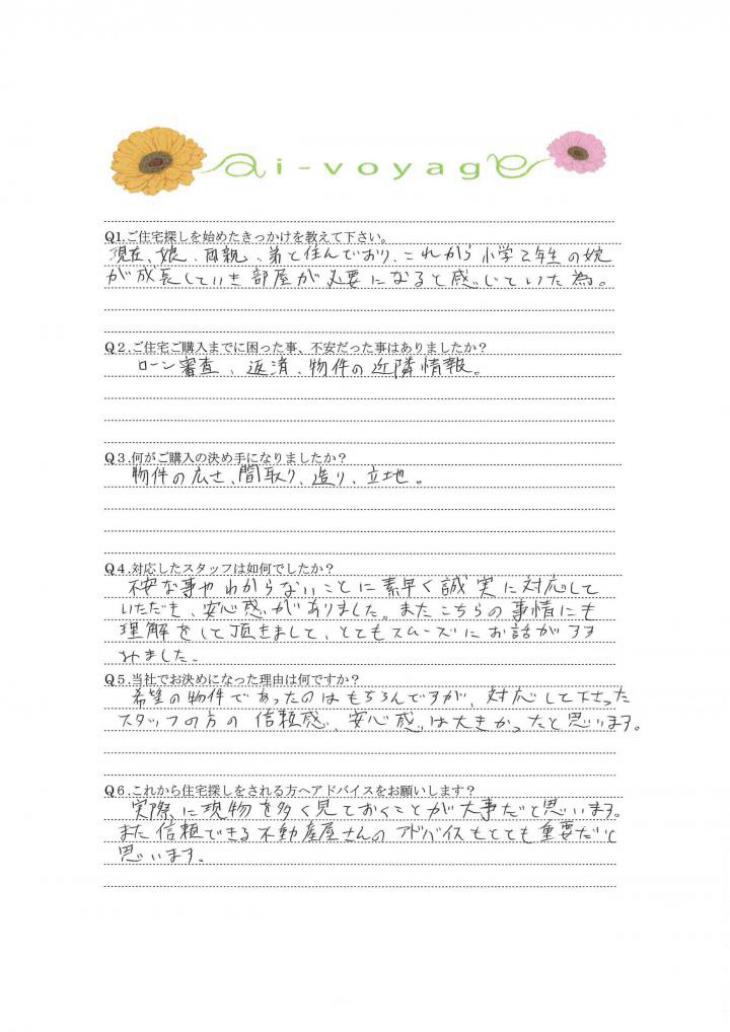 ai-voyage
Q1.ご住宅探しを始めたきっかけを教えて下さい。
現在、娘、両親、弟と住んでおり、これから小学2年生の娘
が成長していき部屋が必要になると感じていた為。
Q2.ご住宅ご購入までに困った事、不安だった事はありましたか？
ローン審査、返済、物件の近隣情報。
Q3.何がご購入の決め手になりましたか？
物件の広さ、間取り、造り、立地。
Q4.対応したスタッフは如何でしたか？
不安な事やわからないことに素早く誠実に対応して
いただき、安心感がありました。またこちらの事情にも
理解をして頂きまして、とてもスムーズにお話がすす
みました。
Q5.当社でお決めになった理由は何ですか？
希望の物件であったのはもちろんですが、対応して下さった
スタッフの方の信頼感、安心感は大きかったと思います。
Q6.これから住宅探しをされる方へアドバイスをお願いします？
実際に現物を多く見ておくことが大事だと思います。
また信頼できる不動産屋さんのアドバイスもとても重要だと
思います。